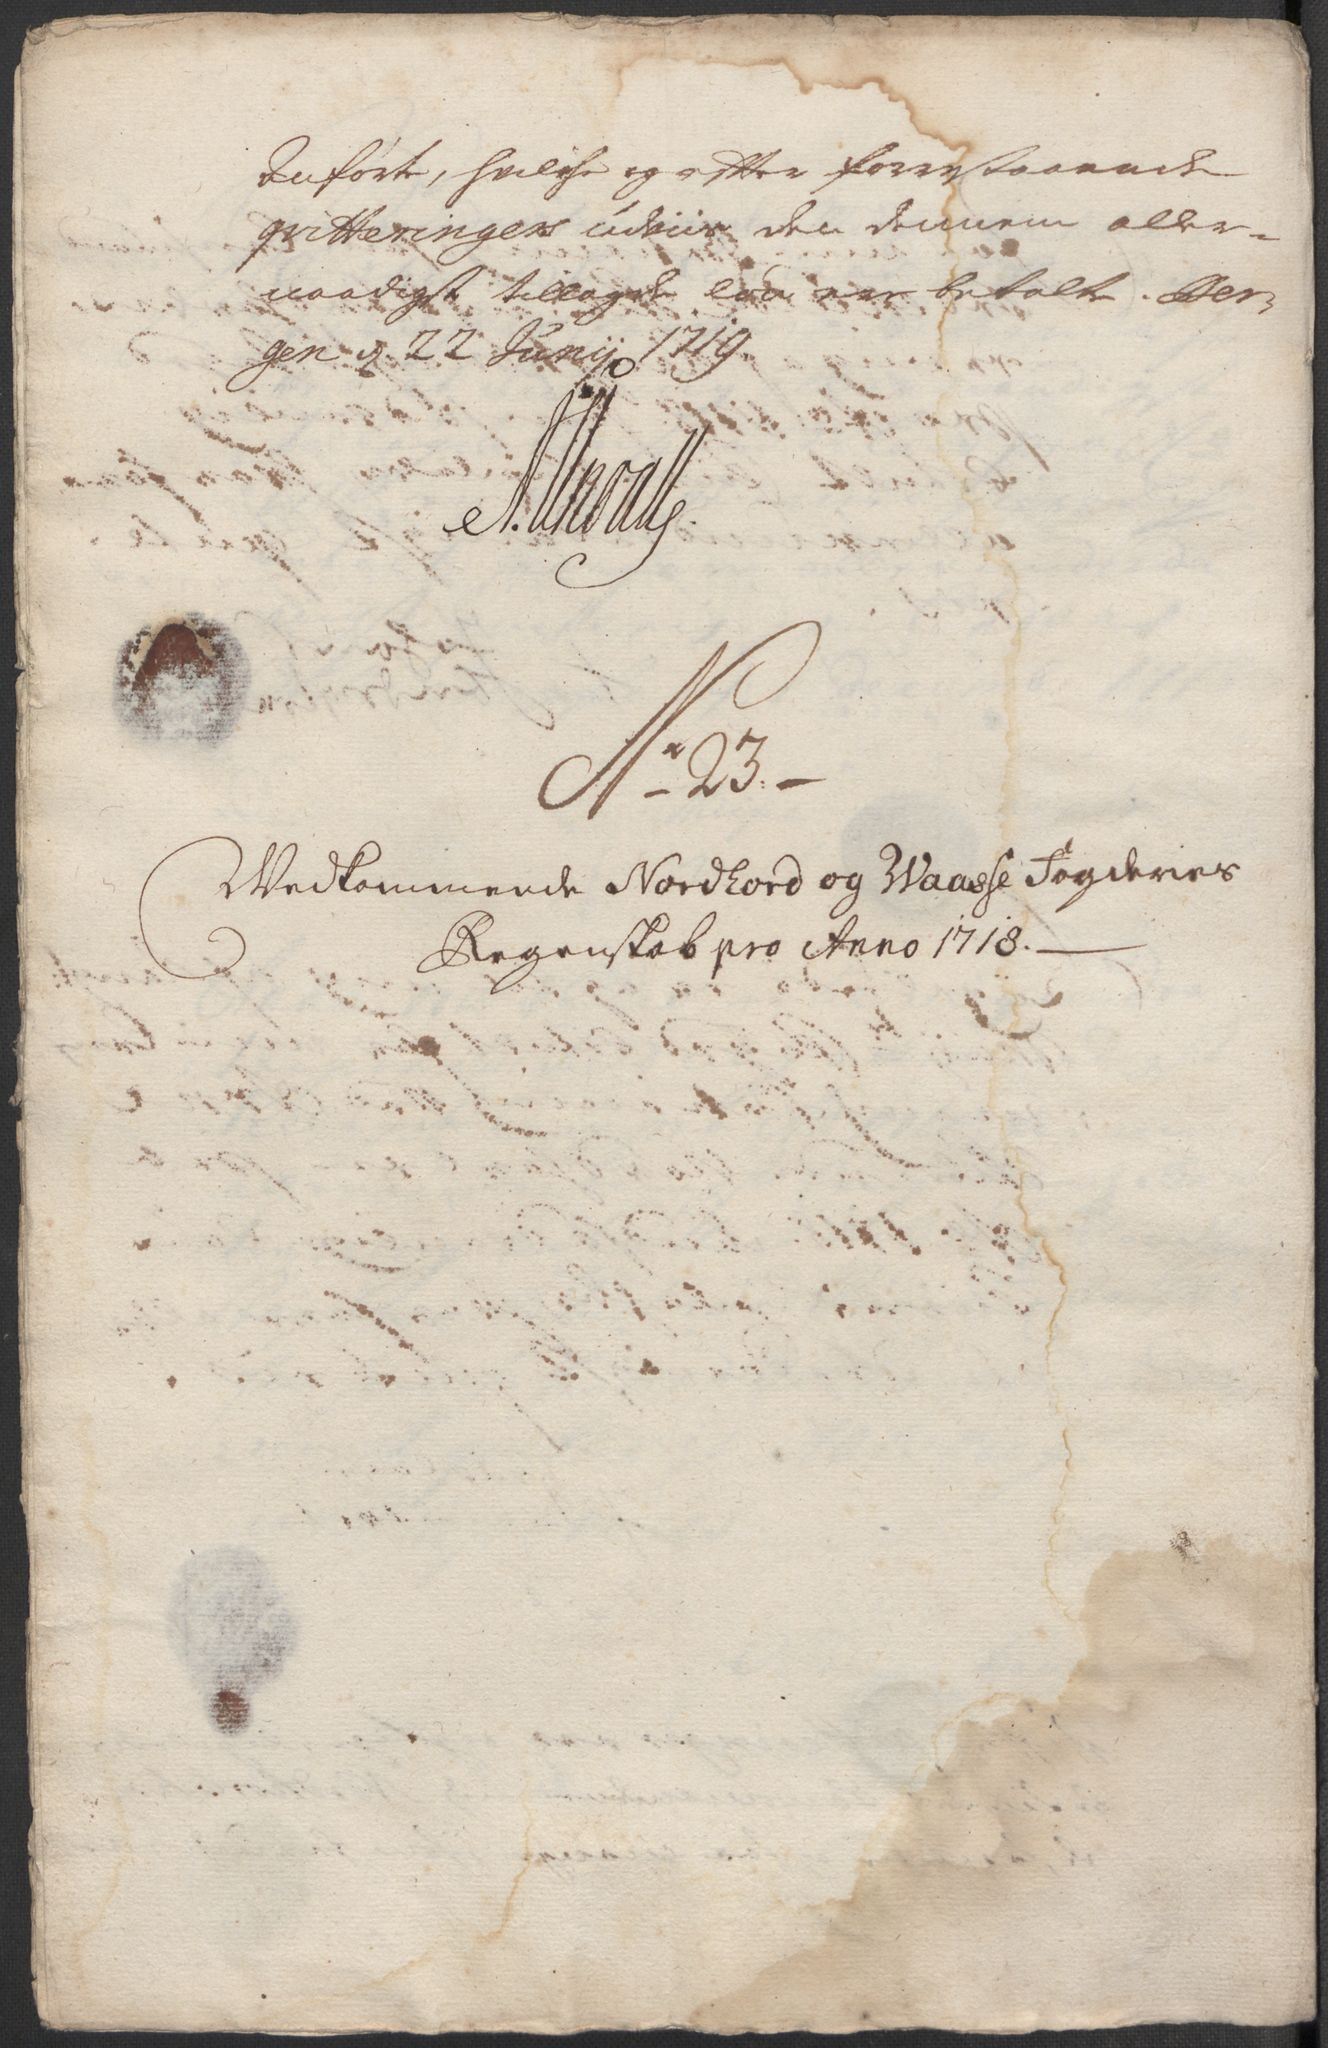 Införte, hvilche og effter forrestaaende
qvitteringers udviis den dennem aller-
naadigst tillagde løn er betalt. Ber-
gen d 22 Junij 1719
No 23.
Vedkommende Nordhord og Waasse Fogderies
Regenskab pro Anno 1718.